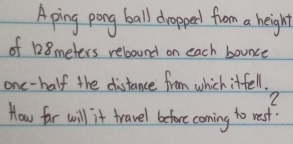 A ping pong ball dropped from a height
of 128 meters rebound on each bounce
one-half the distance from which it fell.
How far will it travel before coming to rest?